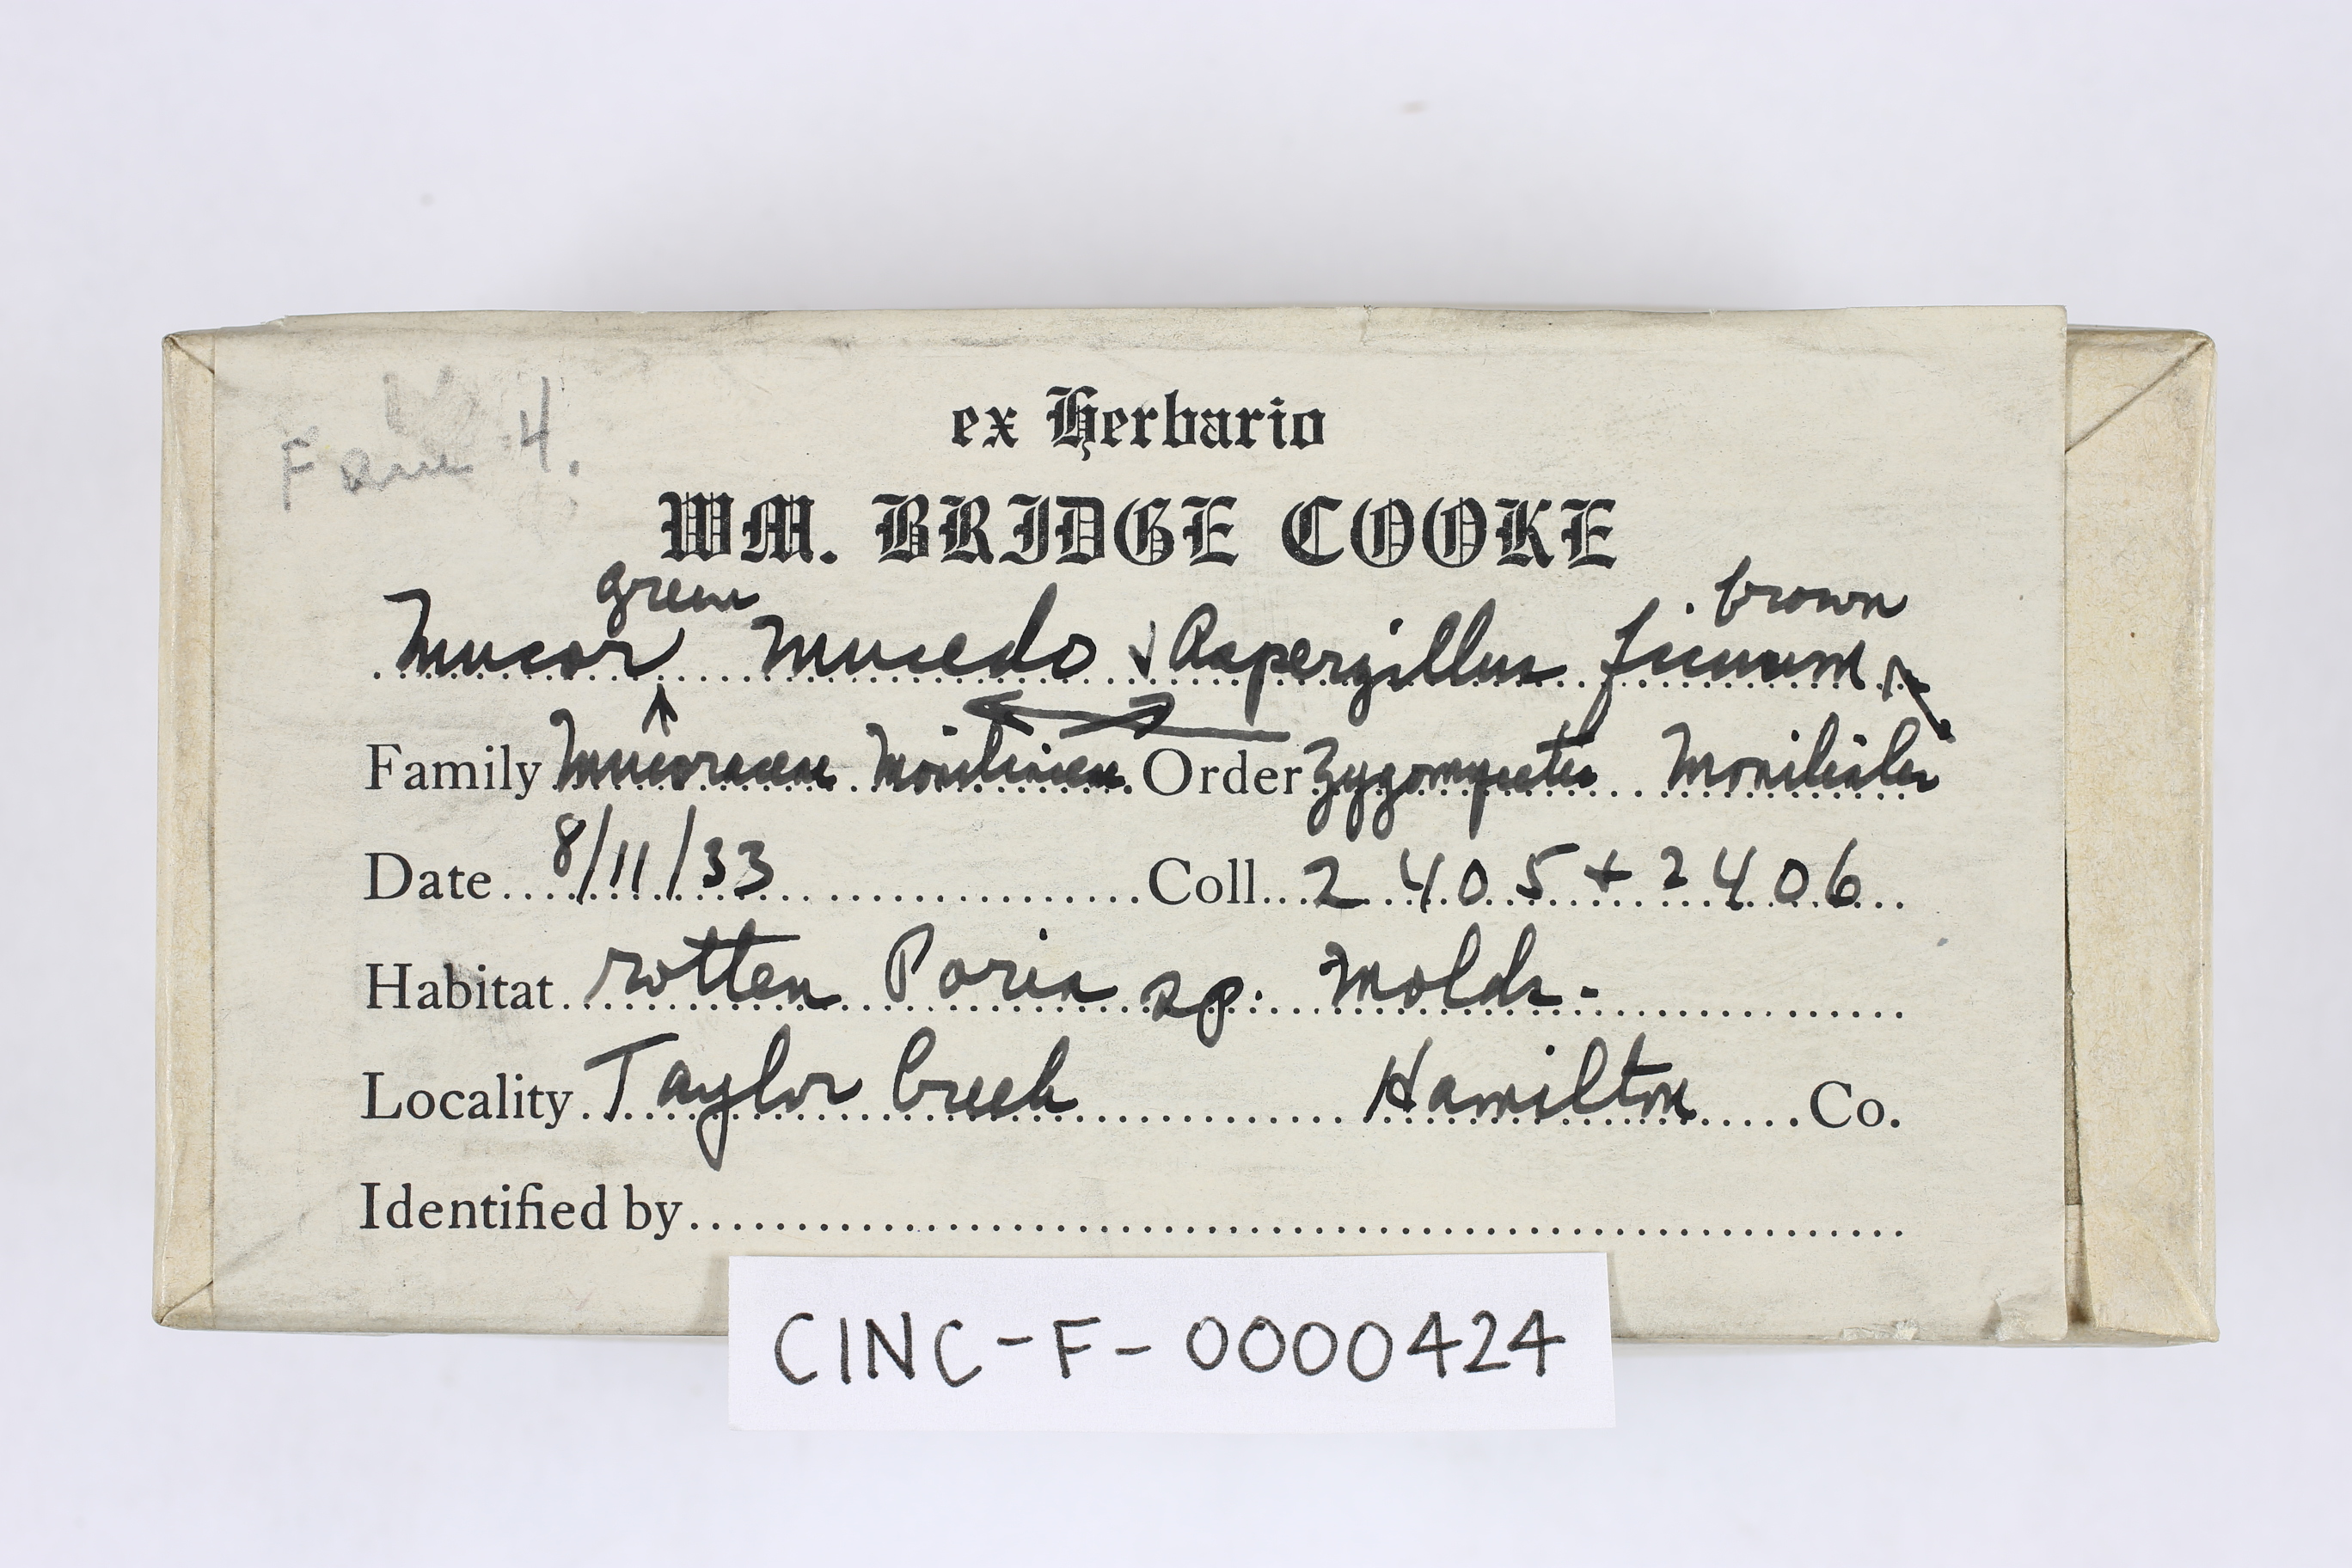 Fam 4.
ex Herbario
WM. BRIDGE COOKE
green brown
Mucor mucedo + Aspergillus ficuum
Family Mucoraceae Moniliaceae Order Zygomycetes Moniliales
Date 8/11/33 Coll. 2405 + 2406
Habitat rotten Poria sp. Molds-
Locality Taylor Creek Hamilton Co.
Identified by
CINC-F-0000424